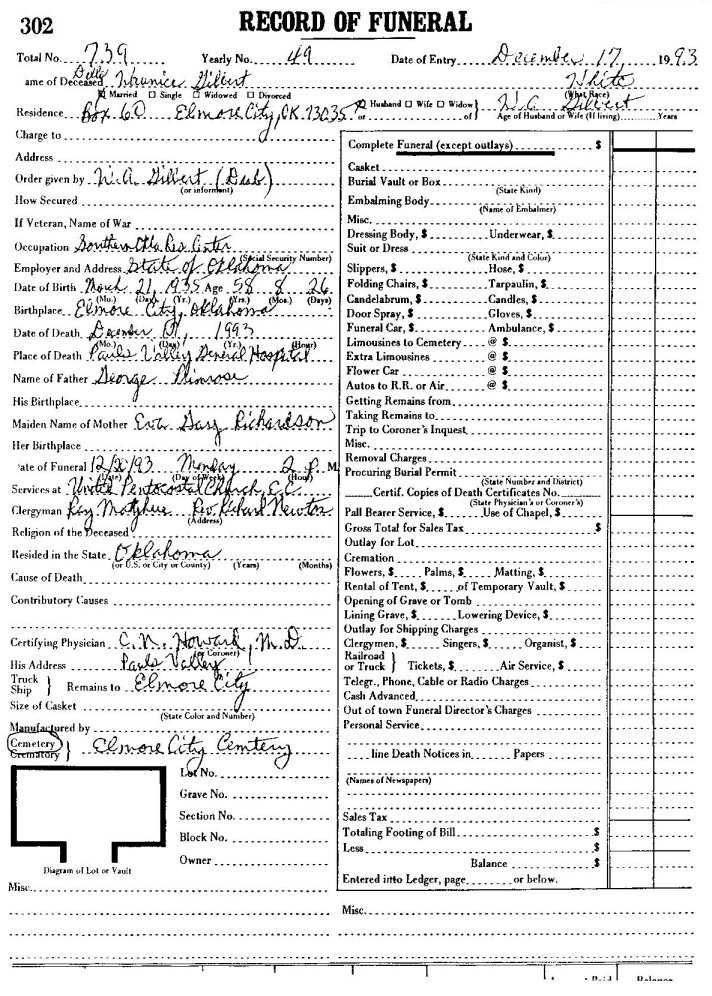 302 RECORD OF FUNERAL
Total No. 739 Yearly No. 49 Date of Entry December 17, 1993
ame of Deceased Billy Gilbert White
Married Single Widowed Divorced (What Race)
Residence Box 60 Elmore City, OK 73035 or Husband Wife Widow of W.A. Gilbert Age of Husband or Wife (If living) Years
Charge to
Address
Order given by W.A. Gilbert (Dad)
(or informant)
How Secured
If Veteran, Name of War
Occupation Southern Okla Res. Center
(Social Security Number)
Employer and Address State of Oklahoma
Date of Birth March 21, 1935 Age 58 8 26
(Mo.) (Day) (Yr.) (Yrs.) (Mos.) (Days)
Birthplace Elmore City, Oklahoma
Date of Death December 17, 1993
(Mo.) (Day) (Yr.) (Hour)
Place of Death Pauls Valley General Hospital
Name of Father George Primrose
His Birthplace
Maiden Name of Mother Eva Richardson
Her Birthplace
ate of Funeral 12/20/93 Monday 2 P. M.
(Date) (Day of Week) (Hour)
Services at United Pentecostal Church, E.C.
Clergyman Ray Rev. Richard Newton
(Address)
Religion of the Deceased
Resided in the State Oklahoma
(or U.S. or City or County) (Years) (Months)
Cause of Death
Contributory Causes
Certifying Physician C.N. Howard, M.D.
(or Coroner)
His Address Pauls Valley
Truck
Ship } Remains to Elmore City
Size of Casket
(State Color and Number)
Manufactured by
Cemetery
Crematory } Elmore City Cemtery
Lot No.
Grave No.
Section No.
Block No.
Owner
Diagram of Lot or Vault
Misc.
Complete Funeral (except outlays) $
Casket
Burial Vault or Box
(State Kind)
Embalming Body
(Name of Embalmer)
Misc.
Dressing Body, $ Underwear, $
Suit or Dress
(State Kind and Color)
Slippers, $ Hose, $
Folding Chairs, $ Tarpaulin, $
Candelabrum, $ Candles, $
Door Spray, $ Gloves, $
Funeral Car, $ Ambulance, $
Limousines to Cemetery @ $
Extra Limousines @ $
Flower Car @ $
Autos to R.R. or Air @ $
Getting Remains from
Taking Remains to
Trip to Coroner's Inquest
Misc.
Removal Charges
Procuring Burial Permit
(State Number and District)
Certif. Copies of Death Certificates No.
(State Physician's or Coroner's)
Pall Bearer Service, $ Use of Chapel, $
Gross Total for Sales Tax $
Outlay for Lot
Cremation
Flowers, $ Palms, $ Matting, $
Rental of Tent, $ of Temporary Vault, $
Opening of Grave or Tomb
Lining Grave, $ Lowering Device, $
Outlay for Shipping Charges
Clergymen, $ Singers, $ Organist, $
Railroad
or Truck } Tickets, $ Air Service, $
Telegr., Phone, Cable or Radio Charges
Cash Advanced
Out of town Funeral Director's Charges
Personal Service
line Death Notices in Papers
(Names of Newspapers)
Sales Tax
Totaling Footing of Bill $
Less $
Balance $
Entered into Ledger, page or below.
Misc.
Balance